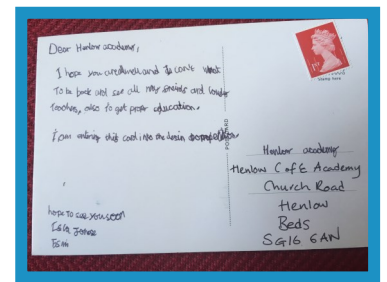 Dear Henlow academy,
I hope you are well and I can't wait
To be back and see all my friends and lovely
teachers, also to get proper education.
I am entering this card into the design competition.
hope to see you soon
Isla Jones
POSTCARD
1st
stamp here
Henlow academy
Henlow C of E Academy
Church Road
Henlow
Beds
SG16 6AN